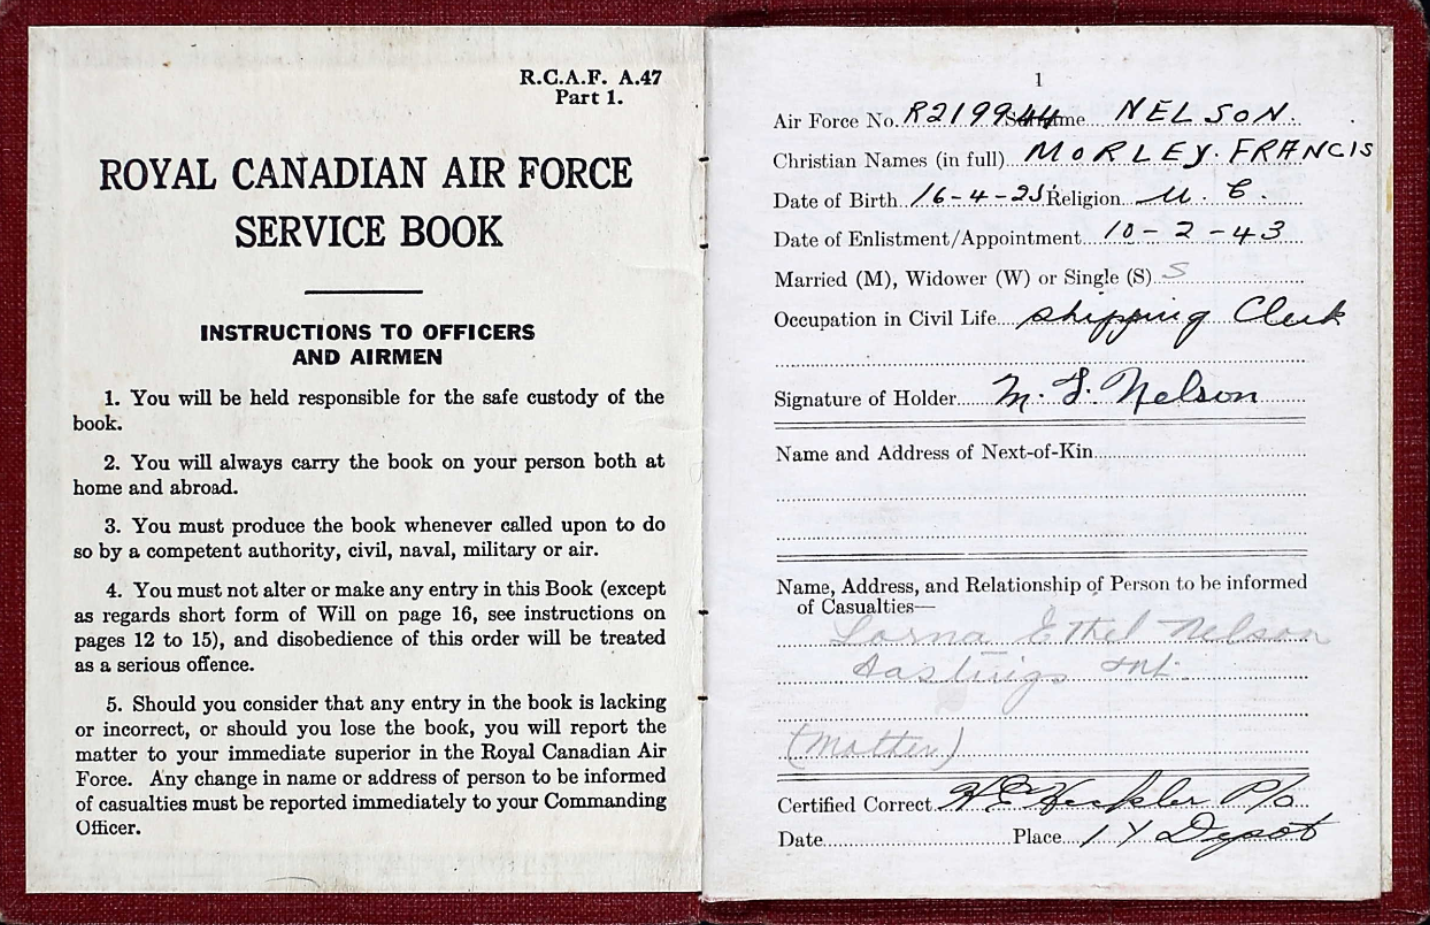 R.C.A.F. A.47
Part 1.
ROYAL CANADIAN AIR FORCE
SERVICE BOOK
INSTRUCTIONS TO OFFICERS
AND AIRMEN
1. You will be held responsible for the safe custody of the
book.
2. You will always carry the book on your person both at
home and abroad.
3. You must produce the book whenever called upon to do
so by a competent authority, civil, naval, military or air.
4. You must not alter or make any entry in this Book (except
as regards short form of Will on page 16, see instructions on
pages 12 to 15), and disobedience of this order will be treated
as a serious offence.
5. Should you consider that any entry in the book is lacking
or incorrect, or should you lose the book, you will report the
matter to your immediate superior in the Royal Canadian Air
Force. Any change in name or address of person to be informed
of casualties must be reported immediately to your Commanding
Officer.
1
Air Force No. R219944 Surname NELSON.
Christian Names (in full) MORLEY. FRANCIS
Date of Birth 16-4-25 Religion U. C.
Date of Enlistment/Appointment 10-2-43
Married (M), Widower (W) or Single (S) S
Occupation in Civil Life shipping Clerk
Signature of Holder M. F. Nelson
Name and Address of Next-of-Kin
Name, Address, and Relationship of Person to be informed
of Casualties—
Lorna Ethel Nelson
Hastings Ont.
(Mother)
Certified Correct P/O
Date Place 1 Y Depot